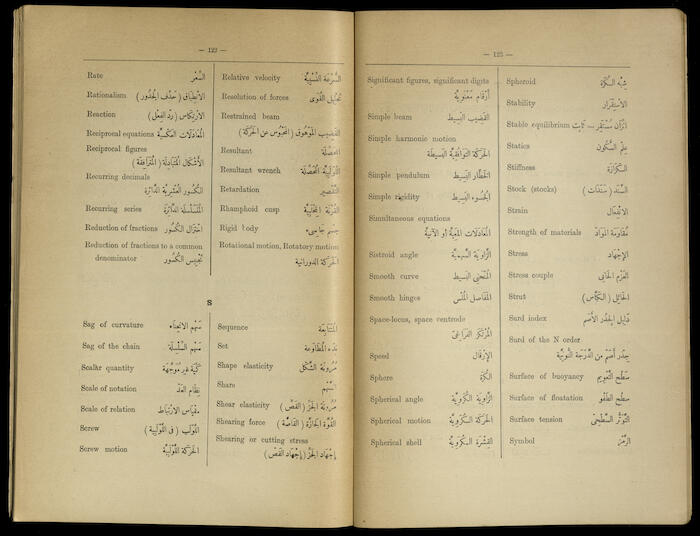 — 122 —
Rate السِّعْر
Rationalism الانطِاق ( حَذْف الجُذُور )
Reaction الارْتِكاس ( رَدّ الفِعْل )
Reciprocal equations المُعَادَلات العَكْسِيَّة
Reciprocal figures
الأشْكال المُتَبَادِلَة ( المُتَرافِقَة )
Recurring decimals
الكُسُور العَشْرِيَّة الدَّائِرَة
Recurring series المُتَسَلْسِلَة الدَّائِرَة
Reduction of fractions اخْتِزال الكُسُور
Reduction of fractions to a common
denominator تَجْنِيس الكُسُور
Relative velocity السُّرْعَة النِّسْبِيَّة
Resolution of forces تَحْلِيل القُوَى
Restrained beam
القَضِيب المَوْهُوق ( المَحْبُوس عن الحَرَكَة )
Resultant المُحَصِّلَة
Resultant wrench المُحَصِّلَة
Retardation التَّقْصِير
Rhamphoid cusp القُرْنَة المِخْلَبِيَّة
Rigid body جِسْم جَاسِئ
Rotational motion, Rotatory motion
الحَرَكَة الدورانية
S
Sag of curvature سَهْم الانحِناء
Sag of the chain سَهْم السِّلْسِلَة
Scalar quantity كَمِّيَّة غير مُوَجَّهَة
Scale of notation نِظَام العَدّ
Scale of relation مِقْيَاس الارْتِبَاط
Screw اللَّوْلَب ( فى اللَّوْلَبِيَّة )
Screw motion الحَرَكَة اللَّوْلَبِيَّة
Sequence المُتَتَابِعَة
Set المُطَاوَعَة
Shape elasticity مُرُونَة الشَّكْل
Share سَهْم
Shear elasticity مُرُونَة الجَزّ ( القَصّ )
Shearing force القُوَّة الجَازَّة ( القَاصَّة )
Shearing or cutting stress
إجْهَاد الجَزّ ( إجْهَاد القَصّ )
— 123 —
Significant figures, significant digits
أرْقَام مَعْنَوِيَّة
Simple beam القَضِيب البَسِيط
Simple harmonic motion
الحَرَكَة التَّوَافُقِيَّة البَسِيطَة
Simple pendulum الخَطَّار البَسِيط
Simple rigidity الجُسُوء البَسِيط
Simultaneous equations
المُعَادَلات المَعِيَّة أو الآنِيَّة
Sistroid angle الزَّاوِيَة
Smooth curve المُنْحَنِي البَسِيط
Smooth hinges المَفَاصِل المُلْس
Space-locus, space centrode
المُرْتَكَز الفَرَاغِيّ
Speed الإرْقَال
Sphere الكُرَة
Spherical angle الزَّاوِيَة الكُرَوِيَّة
Spherical motion الحَرَكَة الكُرَوِيَّة
Spherical shell القِشْرَة الكُرَوِيَّة
Spheroid شِبْه الكُرَة
Stability الاسْتِقْرار
Stable equilibrium اتِّزان مُسْتَقِرّ — ثَابِت
Statics عِلْم السُّكُون
Stiffness الكَزَازَة
Stock (stocks) السَّنَد ( سَنَدَات )
Strain الانْفِعَال
Strength of materials مُقَاوَمَة المَوَادّ
Stress الإجْهَاد
Stress couple العَزْم
Strut
Surd index دَلِيل الجِذْر الأصَمّ
Surd of the N order
جِذْر أصَمّ من الدَّرَجَة النُّونِيَّة
Surface of buoyancy سَطْح التَّعْوِيم
Surface of floatation سَطْح الطَّفْو
Surface tension التَّوَتُّر السَّطْحِيّ
Symbol الرَّمْز